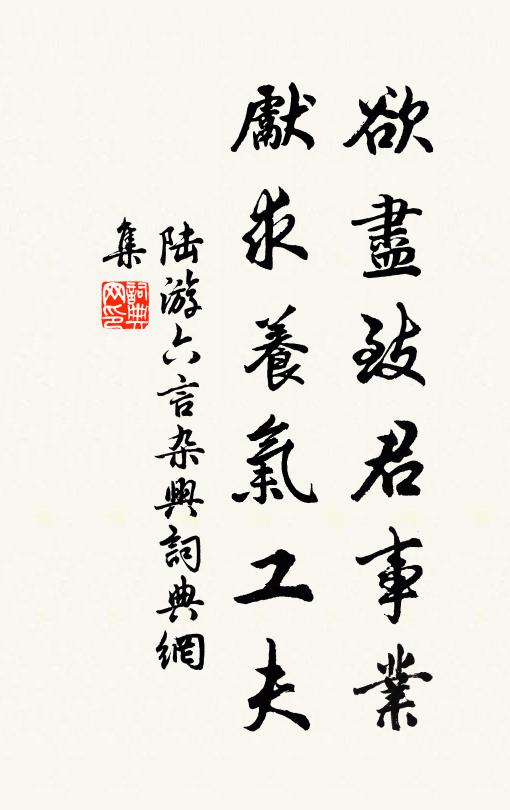 欲盡致君事業
獻求養氣工夫
陆游六言杂興詞典網
集
詞典网印